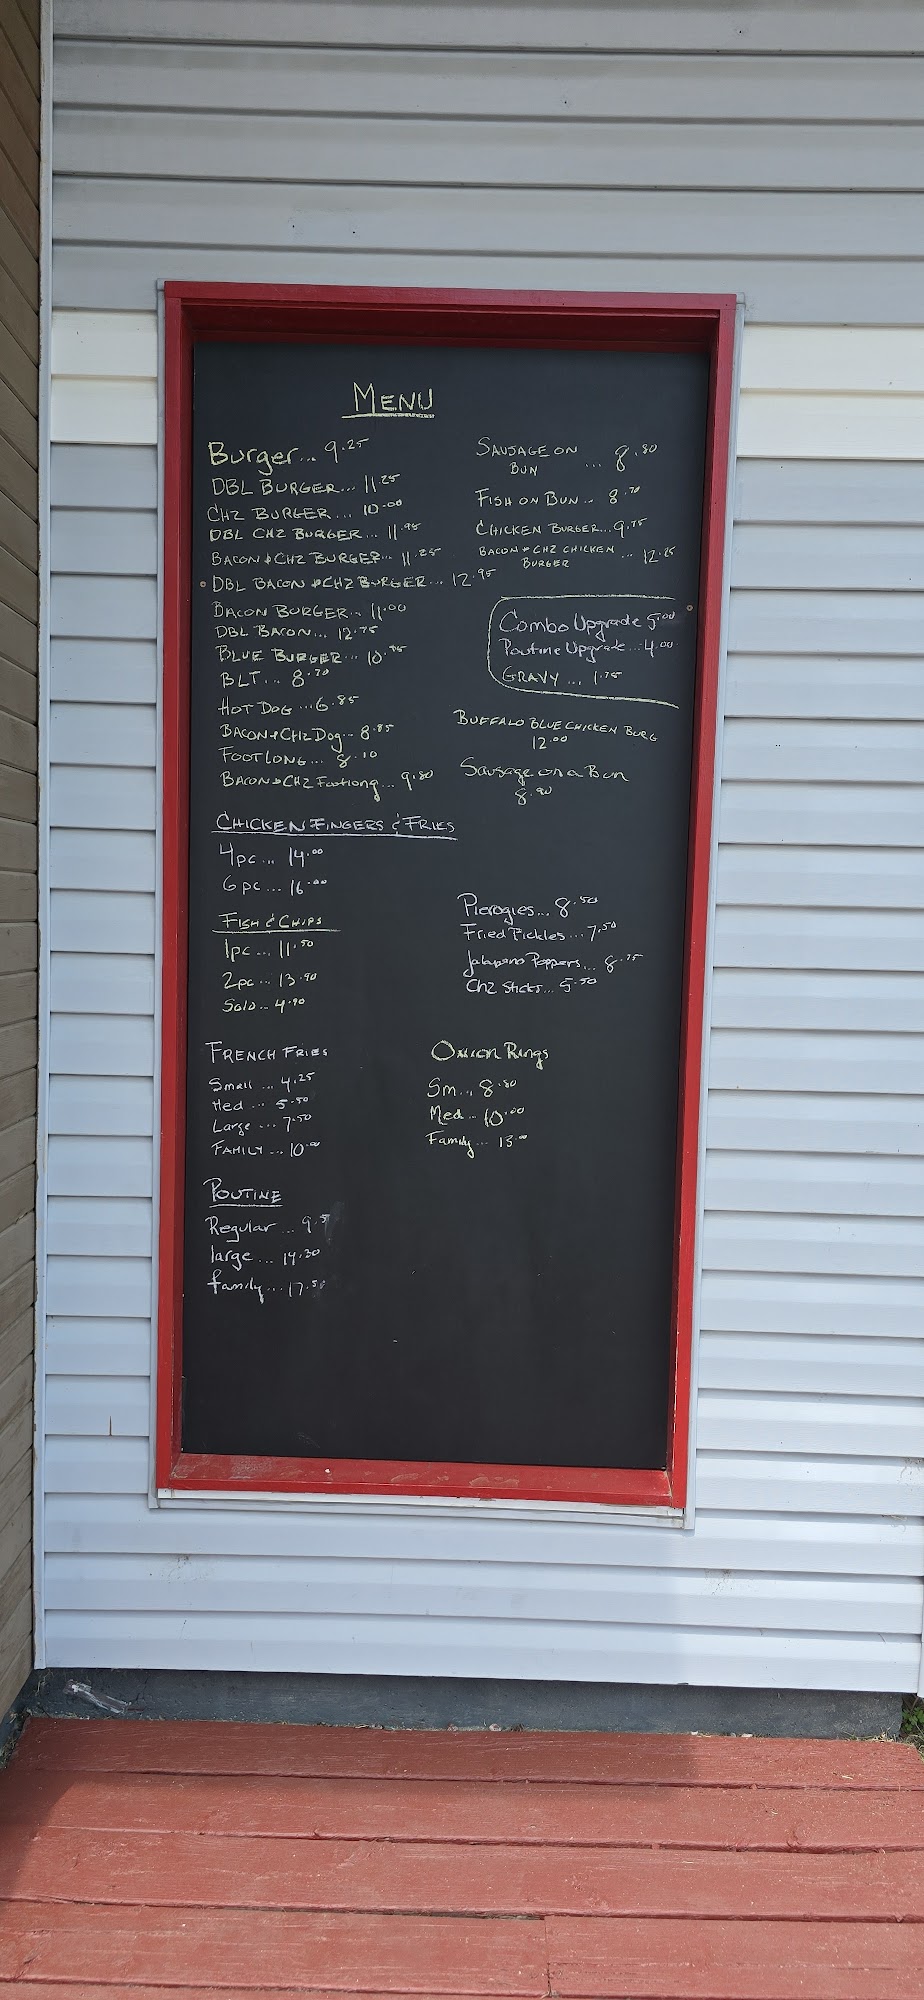 MENU
Burger... 9.25
DBL BURGER... 11.25
CHZ BURGER... 10.00
DBL CHZ BURGER... 11.95
BACON & CHZ BURGER... 11.25
DBL BACON & CHZ BURGER... 12.95
BACON BURGER... 11.00
DBL BACON... 12.75
BLUE BURGER... 10.75
BLT... 8.70
HOT DOG ...6.85
BACON & CHZ Dog... 8.85
FOOTLONG... 8.10
BACON & CHZ Footlong... 9.80
CHICKEN FINGERS & FRIES
4pc... 14.00
6pc... 16.00
FISH & CHIPS
1pc... 11.50
2pc... 13.90
Solo... 4.90
FRENCH FRIES
Small ... 4.25
Med ... 5.50
Large ... 7.50
FAMILY ... 10.00
POUTINE
Regular ... 9.5
large ... 14.30
family... 17.50
SAUSAGE ON
BUN ... 8.80
FISH ON BUN... 8.70
CHICKEN BURGER... 9.75
BACON & CHZ CHICKEN
BURGER ... 12.25
Combo Upgrade 5.00
Poutine Upgrade...4.00
GRAVY ... 1.75
BUFFALO BLUE CHICKEN BURG
12.00
Sausage on a Bun
8.90
Pierogies... 8.50
Fried Pickles...7.50
Jalapeno Poppers... 8.75
Chz Sticks... 5.50
Onion Rings
Sm... 8.80
Med... 10.00
Family... 13.00